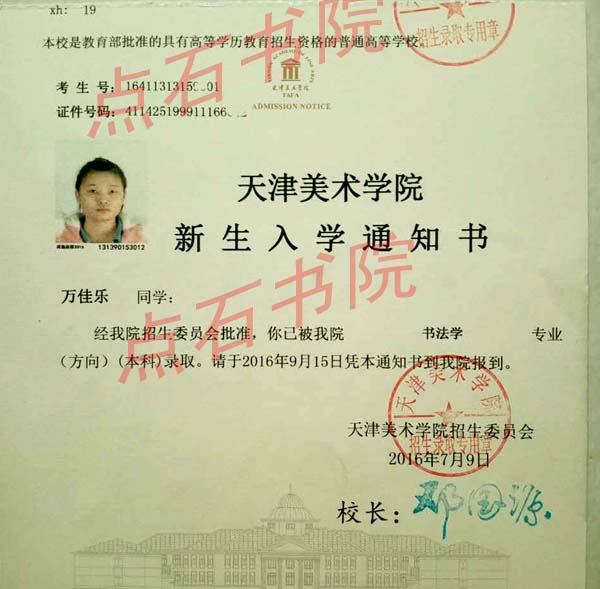 xh: 19
本校是教育部批准的具有高等学历教育招生资格的普通高等学校。
招生录取专用章
考 生 号:
证件号码:
TIANJIN ACADEMY OF FINE ARTS
天津美术学院
TAFA
ADMISSION NOTICE
131390153012
天津美术学院
新生入学通知书
万佳乐 同学:
经我院招生委员会批准，你已被我院 书法学 专业
（方向）(本科)录取。请于2016年9月15日凭本通知书到我院报到。
天津美术学院
招生录取专用章
天津美术学院招生委员会
2016年7月9日
校长: 邓国源
点石书院
点石书院
点石书院